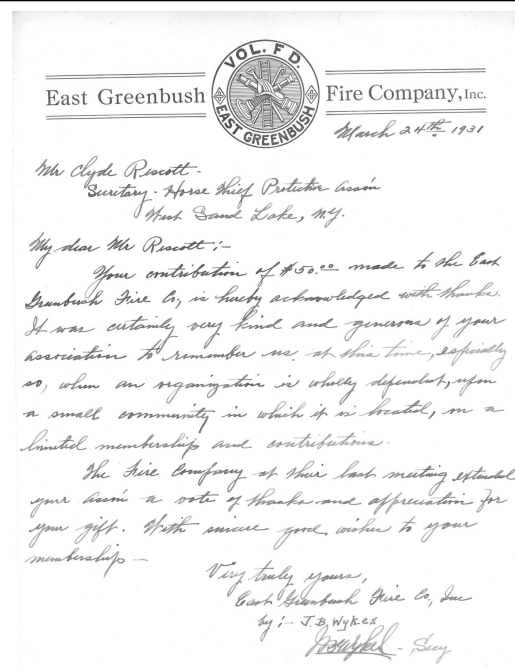 VOL. F D.
EAST GREENBUSH
East Greenbush Fire Company, Inc.
March 24th 1931
Mr Clyde Rescott -
Secretary - Horse Thief Protective Ass'n
West Sand Lake, N.Y.
My dear Mr Rescott :-
Your contribution of $50.00 made to the East
Greenbush Fire Co, is hereby acknowledged with thanks.
It was certainly very kind and generous of your
association to remember us at this time, especially
so, when an organization is wholly dependent, upon
a small community in which it is located, on a
limited membership and contributions.
The Fire Company at their last meeting extended
your Ass'n a vote of thanks and appreciation for
your gift. With sincere good wishes to your
membership -
Very truly yours,
East Greenbush Fire Co, Inc
by :- J. B. Wykes
- Secy